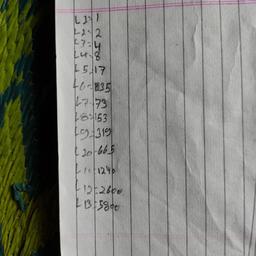 L1=1
L2=2
L3=4
L4=8
L5=17
L6=35
L7=73
L8=153
L9=319
L10=665
L11=1240
L12=2600
L13=5800